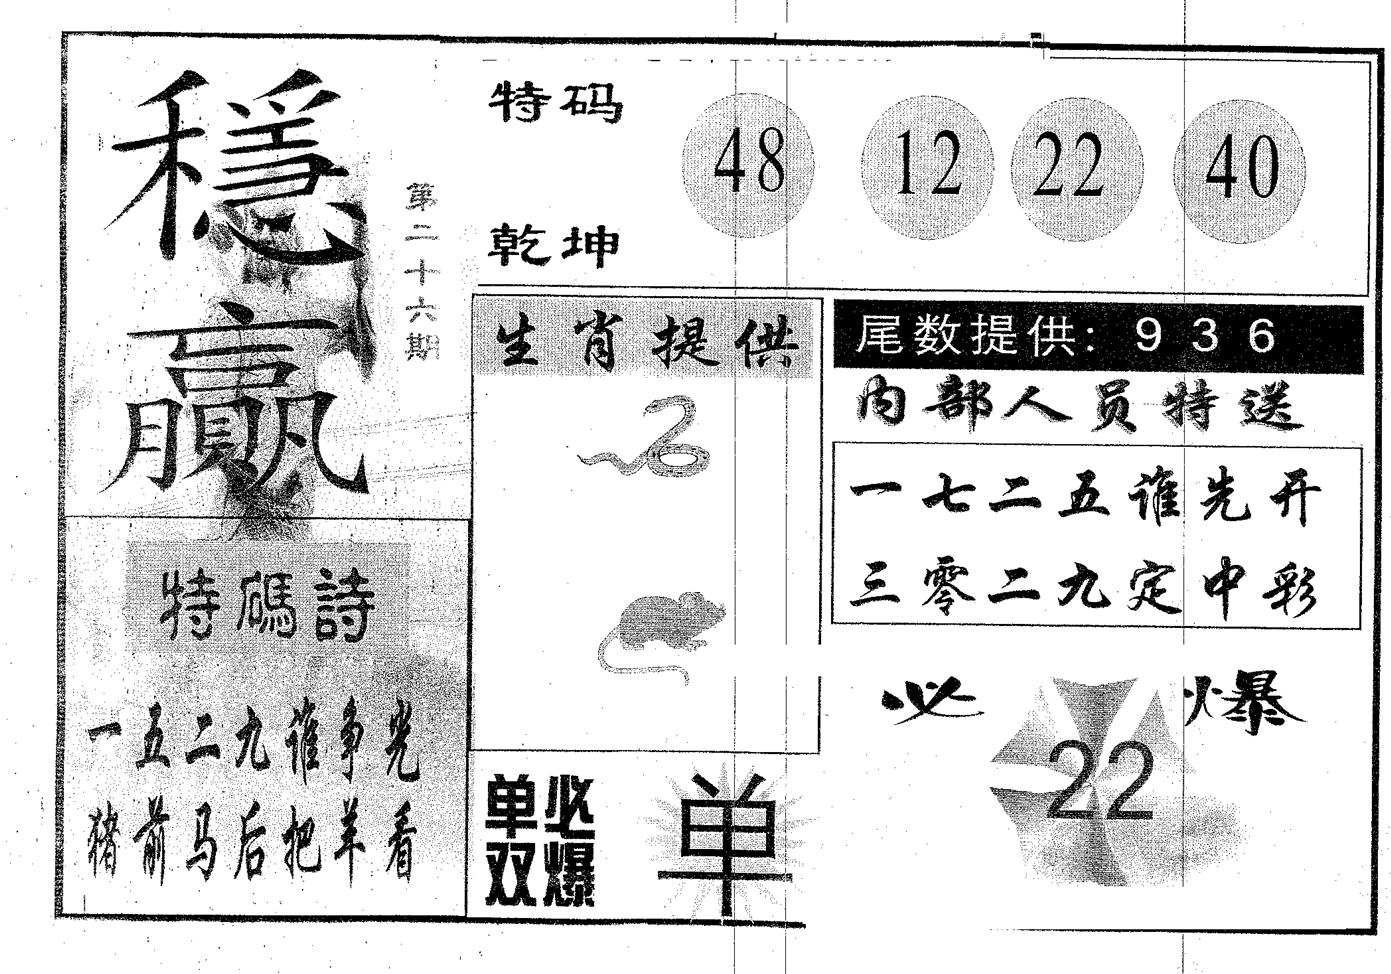 穩贏
第二十六期
特码
乾坤
48 12 22 40
生肖提供
尾数提供: 9 3 6
内部人员特送
一七二五谁先开
三零二九定中彩
特碼詩
一五二九谁争光
猪前马后把羊看
必爆
22
单双
必爆
单